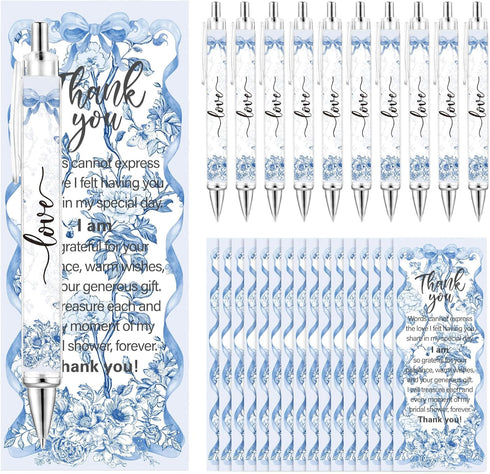 Thank
you
Words cannot express
love I felt having you
in my special day.
I am
grateful for your
warm wishes,
your generous gift.
treasure each and
moment of my
shower, forever.
Thank you!
love
love
love
love
love
love
love
love
love
love
Thank
you
Words cannot express
the love I felt having you
share in my special day.
I am
so grateful for your
warm wishes,
and your generous gift.
I will treasure each and
every moment of my
bridal shower, forever.
Thank you!